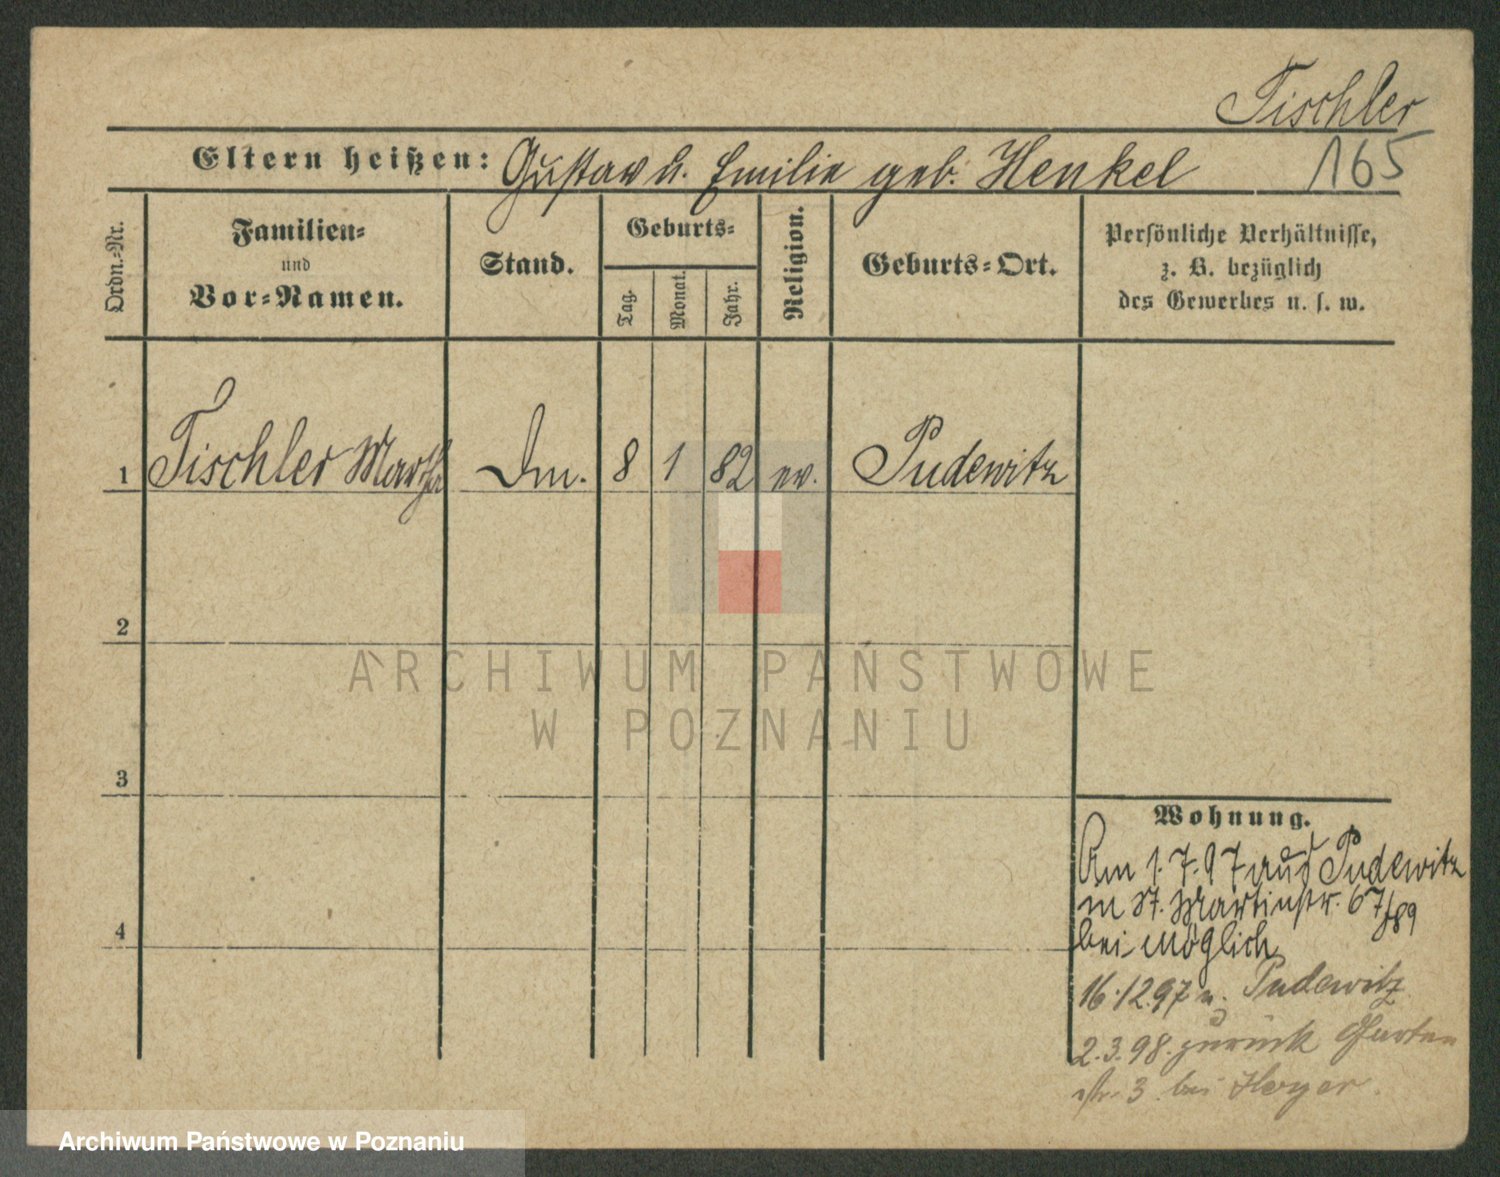 Tischler
Eltern heißen: Gustav u. Emilie geb. Henkel
165
Ordn.-Nr.
Familien-
und
Vor-Namen.
Stand.
Geburts-
Tag.
Monat.
Jahr.
Religion.
Geburts-Ort.
Persönliche Verhältnisse,
z. B. bezüglich
des Gewerbes u. s. w.
1 Tischler Martha Dm. 8 1 82 ev. Pudewitz
2
3
4
ARCHIWUM PAŃSTWOWE
W POZNANIU
Wohnung.
Am 1.7.97 aus Pudewitz
in St. Martinstr. 67/89
bei Möglich
16.12.97 n. Pudewitz
2.3.98. zurück Garten
str. 3 bei Heyer.
Archiwum Państwowe w Poznaniu